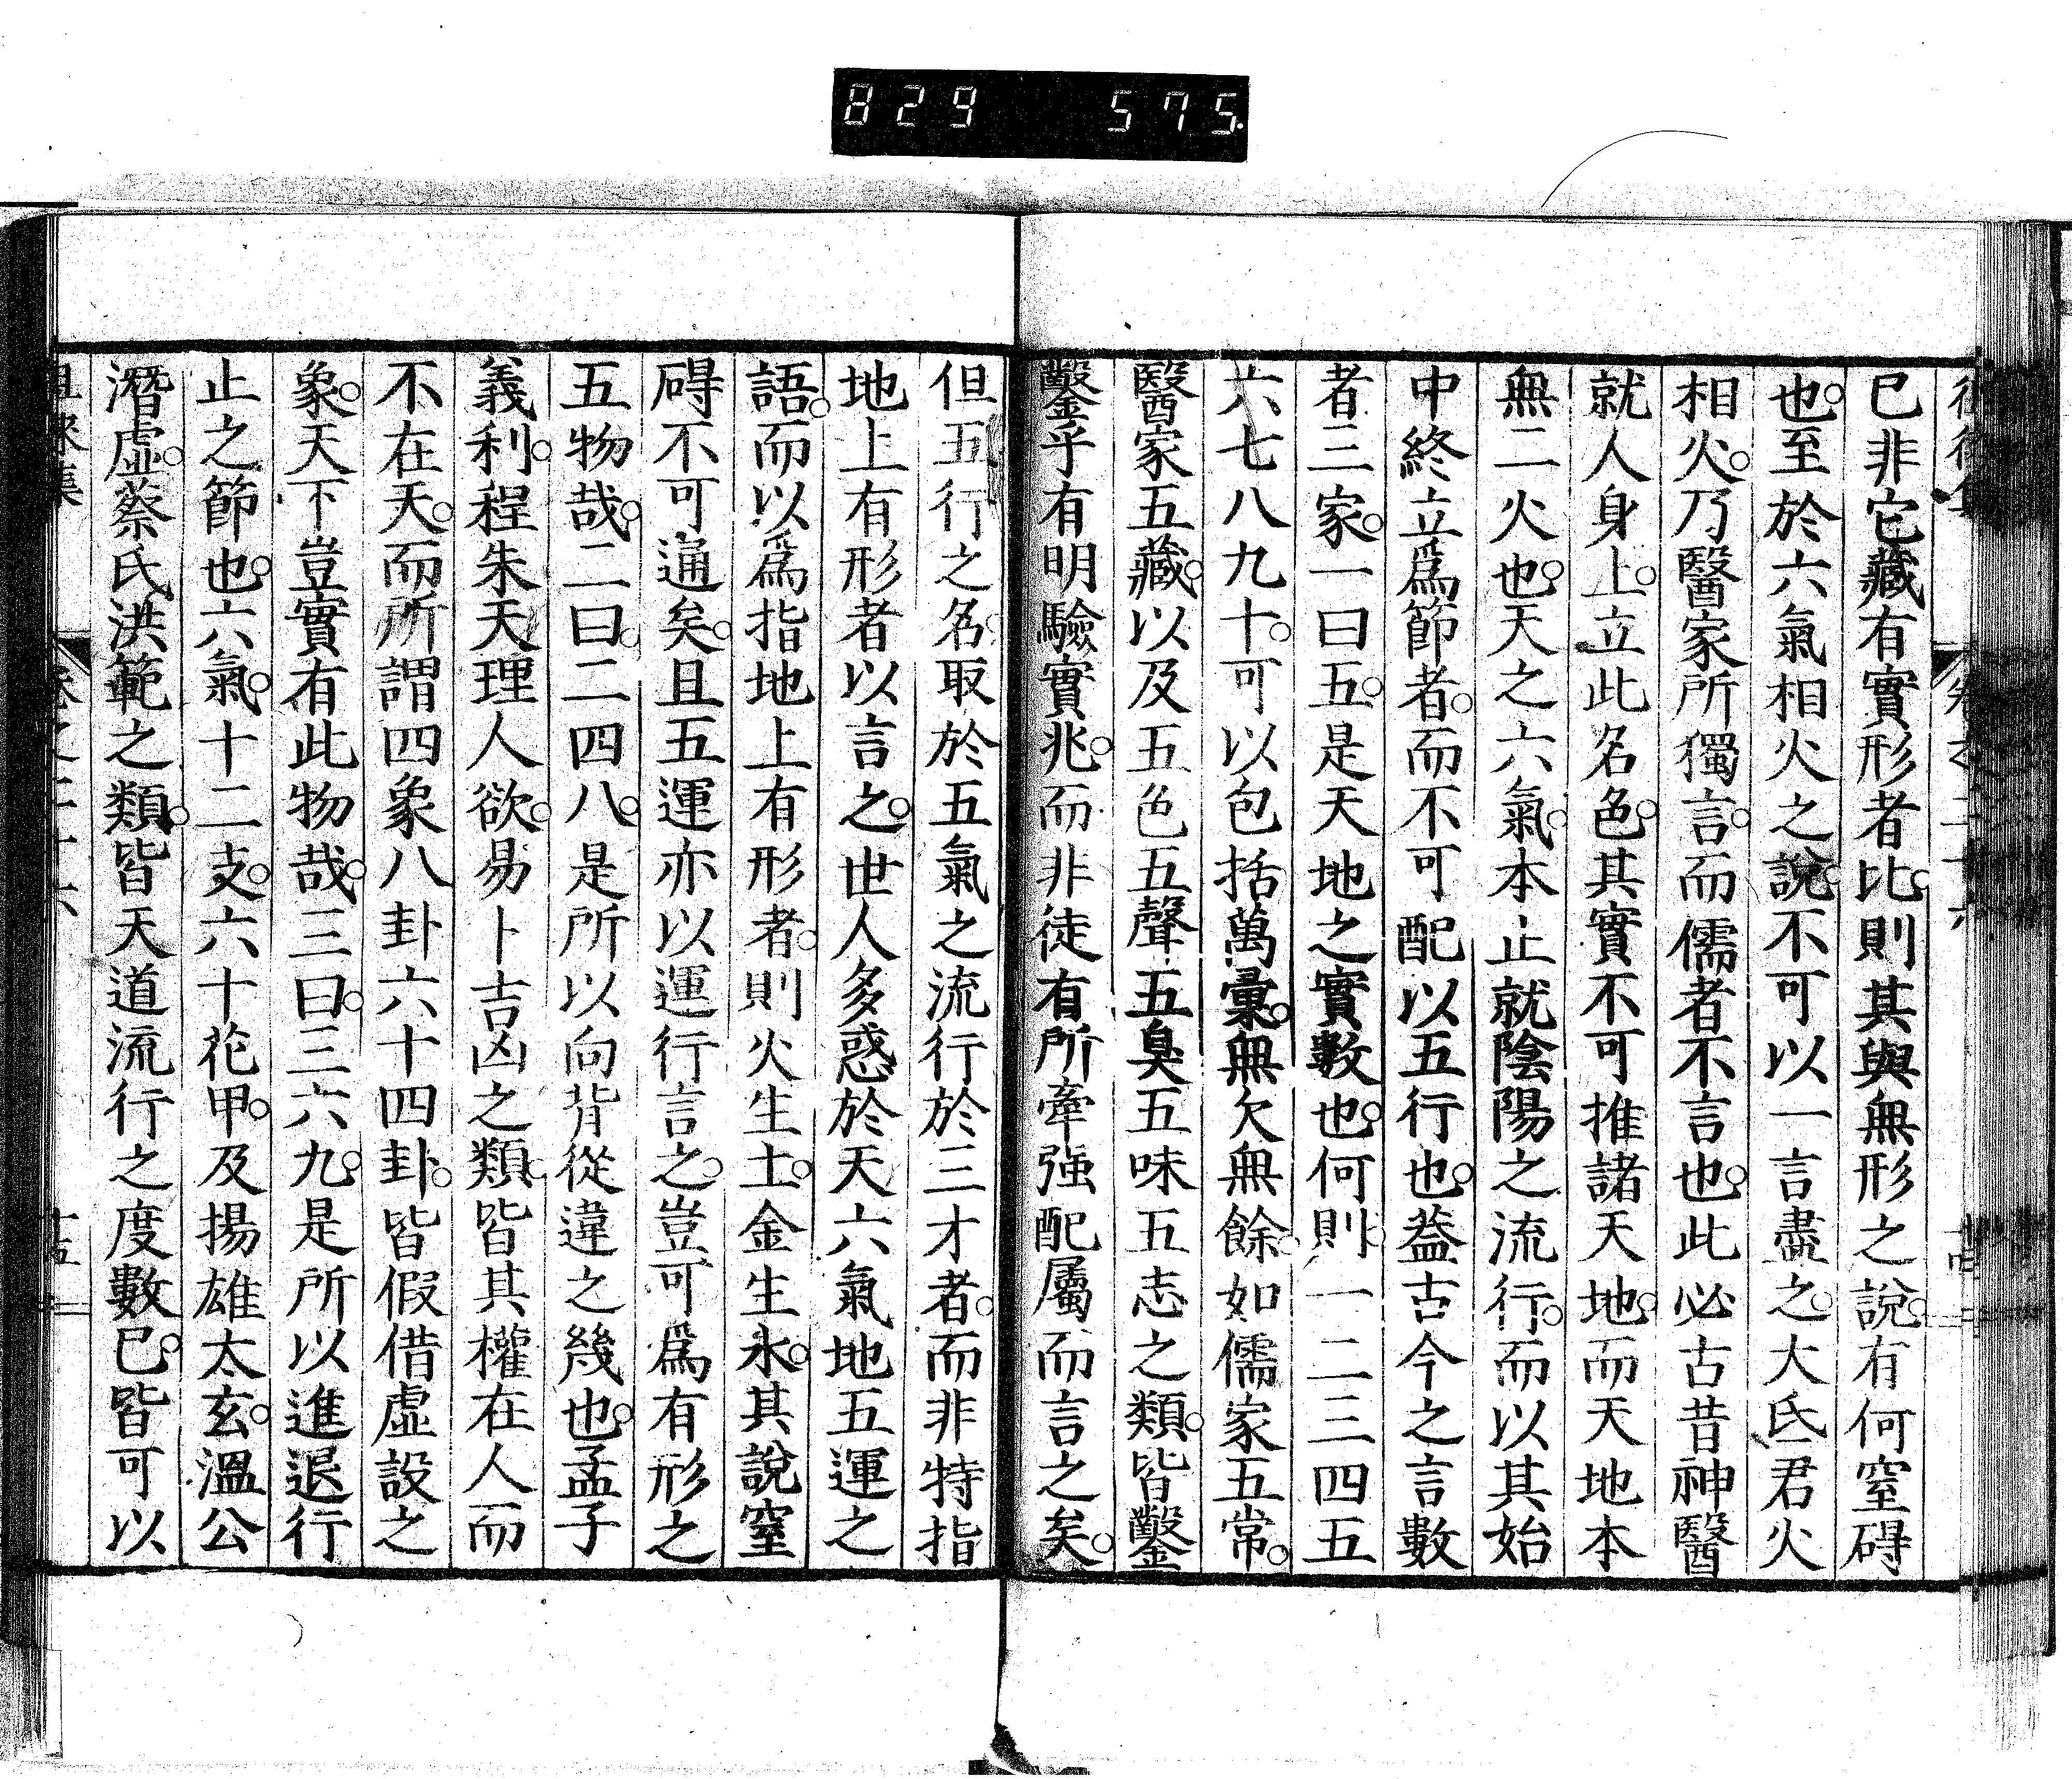 829 575
已非它藏有實形者比則其與無形之說有何窒碍
也至於六氣相火之說不可以一言盡之大氐君火
相火乃醫家所獨言而儒者不言也此必古昔神醫
就人身上立此名色其實不可推諸天地而天地本
無二火也天之六氣本止就陰陽之流行而以其始
中終立爲節者而不可配以五行也葢古今之言數
者三家一曰五是天地之實數也何則一二三四五
六七八九十可以包括萬彙無欠無餘如儒家五常
醫家五藏以及五色五聲五臭五味五志之類皆鑿
鑿乎有明驗實兆而非徒有所牽强配屬而言之矣
但五行之名取於五氣之流行於三才者而非特指
地上有形者以言之世人多惑於天六氣地五運之
語而以爲指地上有形者則火生土金生水其說窒
碍不可通矣且五運亦以運行言之豈可爲有形之
五物哉二曰二四八是所以向背從違之幾也孟子
義利程朱天理人欲易卜吉凶之類皆其權在人而
不在天而所謂四象八卦六十四卦皆假借虛設之
象天下豈實有此物哉三曰三六九是所以進退行
止之節也六氣十二支六十花甲及揚雄太玄溫公
潛虛蔡氏洪範之類皆天道流行之度數已皆可以